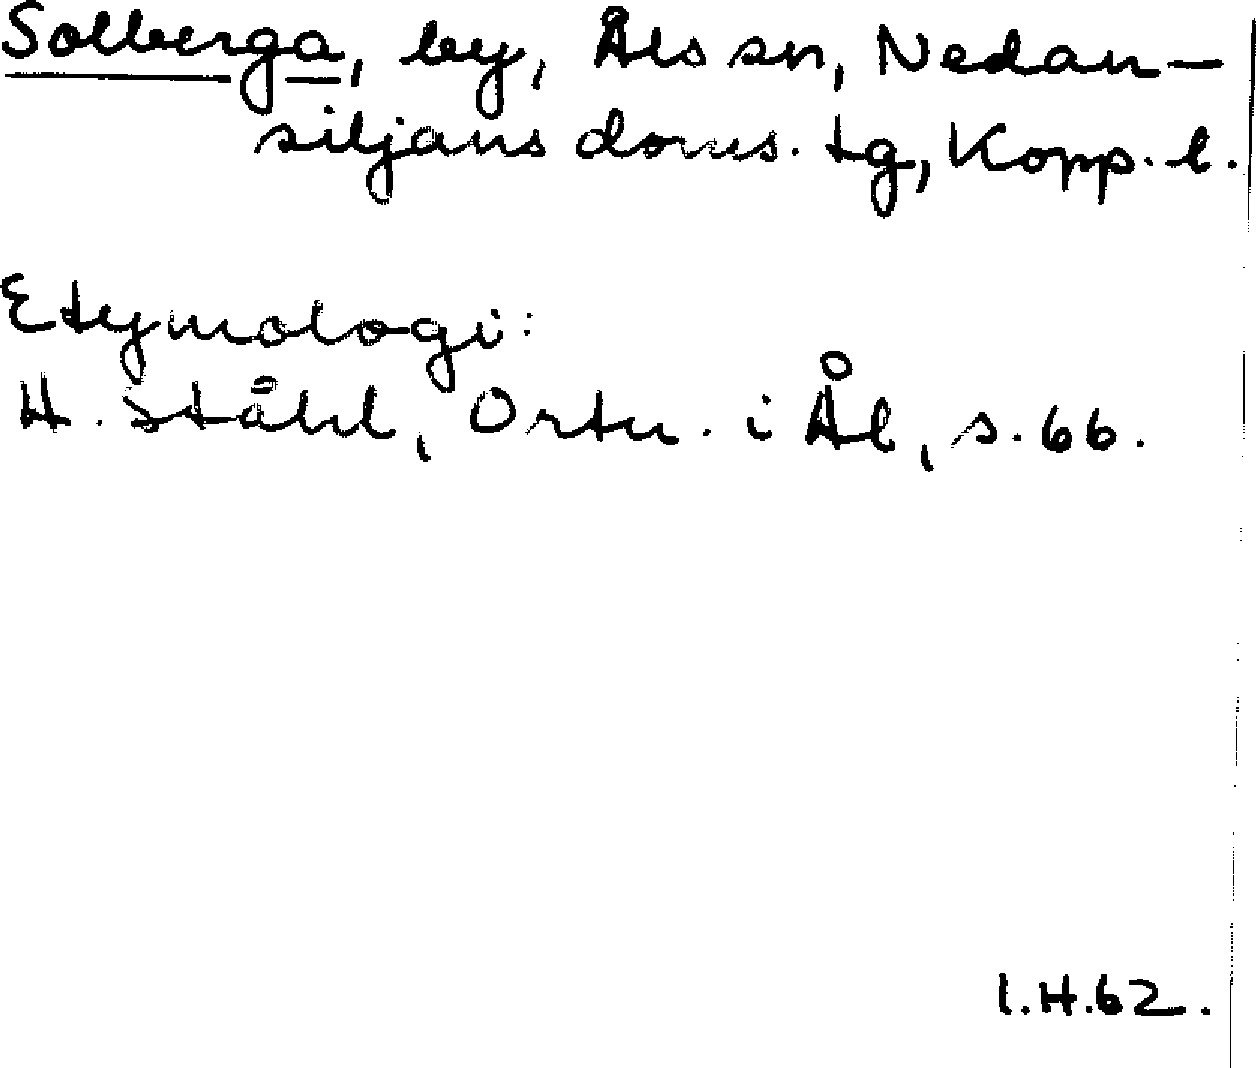 Solberga, by, Åls sn, Nedan-
siljans doms. tg, Kopp. l.
Etymologi:
H. Ståhl, Ortn. i Ål, s. 66.
I.H.62.